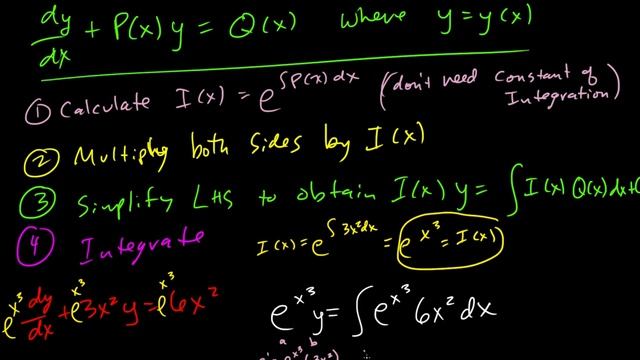 dy/dx + P(x) y = Q(x) where y = y(x)
① Calculate I(x) = e^∫P(x)dx (don't need Constant of Integration)
② Multiply both sides by I(x)
③ Simplify LHS to obtain I(x) y = ∫ I(x) Q(x) dx + C
④ Integrate I(x) = e^∫3x²dx = e^x³ = I(x)
e^x³ dy/dx + e^x³ 3x² y = e^x³ 6x²
e^x³ y = ∫ e^x³ 6x² dx